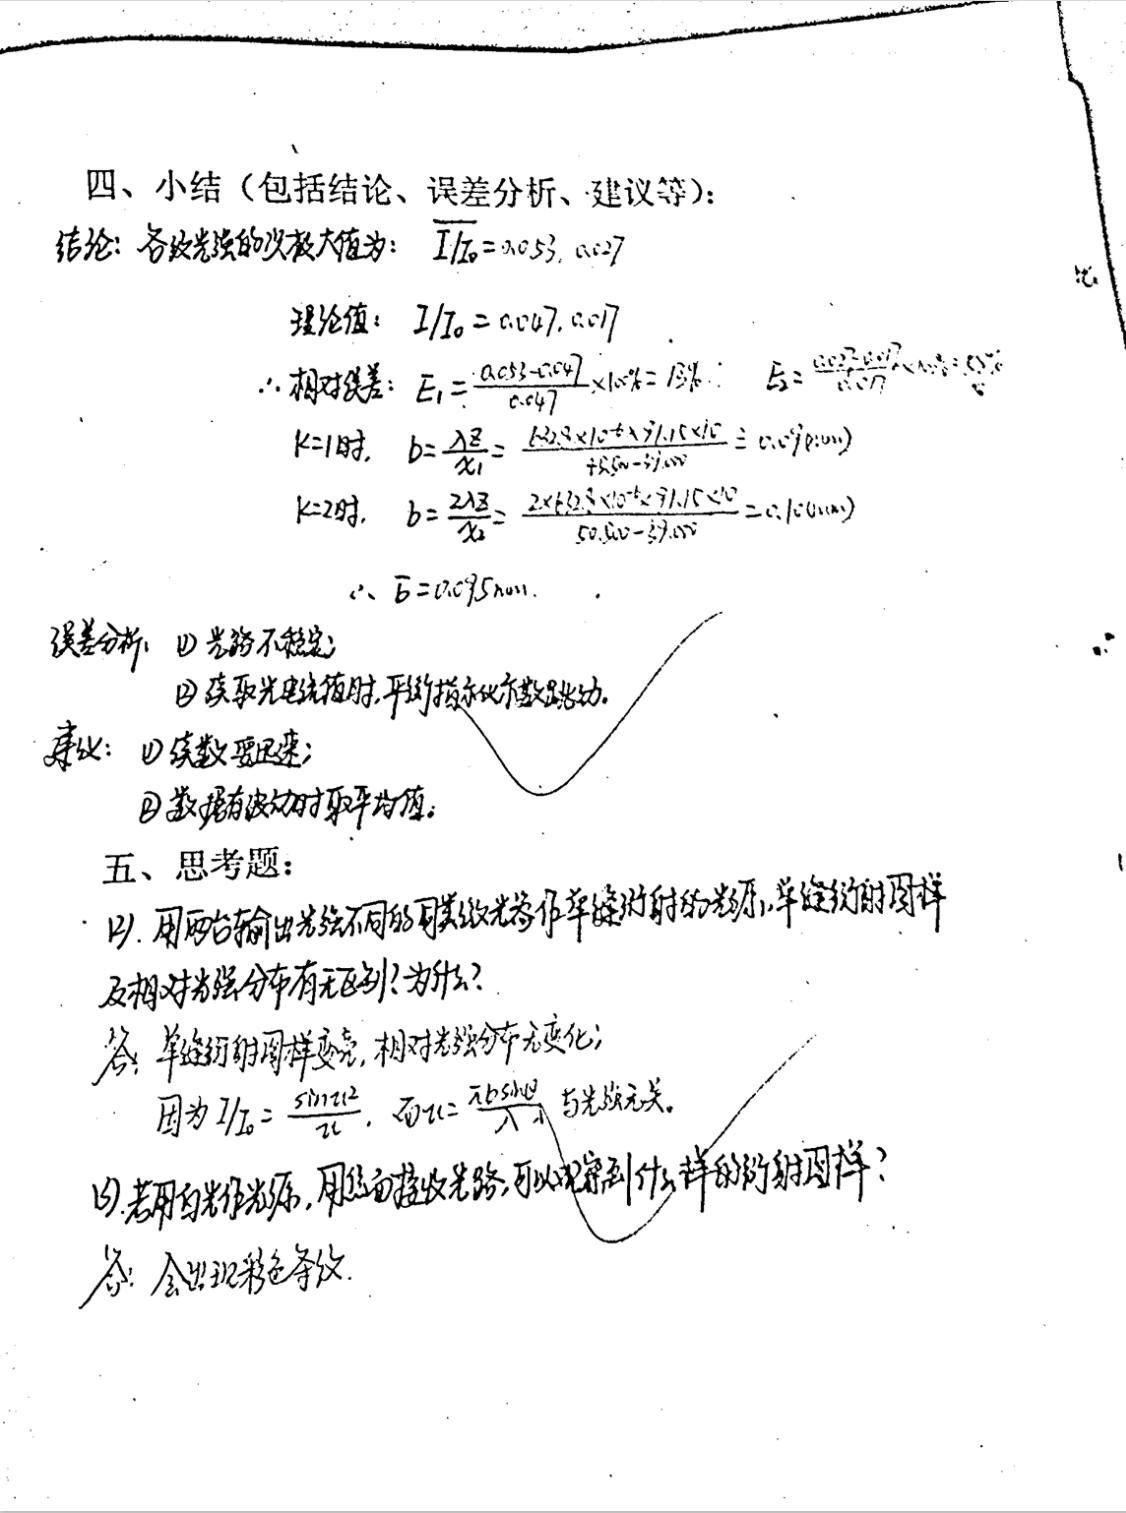 四、小结（包括结论、误差分析、建议等）：
结论：各级光强的次极大值为： I/I₀ = 0.053, 0.027
理论值： I/I₀ = 0.047, 0.017
∴相对误差： E₁ = (0.053-0.047)/0.047 ×100% = 13% E₂ = (0.027-0.017)/0.017 ×100% =
K=1时, b = λZ/x₁ = (632.8×10⁻⁶×91.15×10)/ -39.000 = (mm)
K=2时, b = 2λZ/x₂ = (2×632.8×10⁻⁶×91.15×10)/(50.500-39.000) = 0.100(mm)
∴ b̄ = 0.095mm.
误差分析：(1) 光路不稳定；
(2) 读取光电流值时，平衡指示仪示数跳动。
建议：(1) 读数要迅速；
(2) 数据有波动时取平均值。
五、思考题：
用两台输出光强不同的同类激光器作单缝衍射的光源，单缝衍射图样
及相对光强分布有无区别？为什么？
答：单缝衍射图样变亮，相对光强分布无变化；
因为 I/I₀ = sinu²/u , 而u = πbsinθ/λ 与光强无关。
若用白光作光源，用 接收光路，可以观察到什么样的衍射图样？
答：会出现彩色条纹.